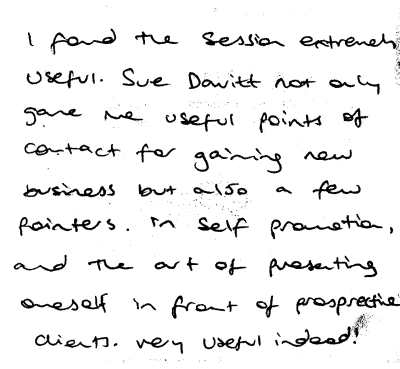 I found the session extremely
useful. Sue Davitt not only
gave me useful points of
contact for gaining new
business but also a few
pointers. in self promotion,
and the art of presenting
oneself in front of prosprective
clients. very useful indeed!